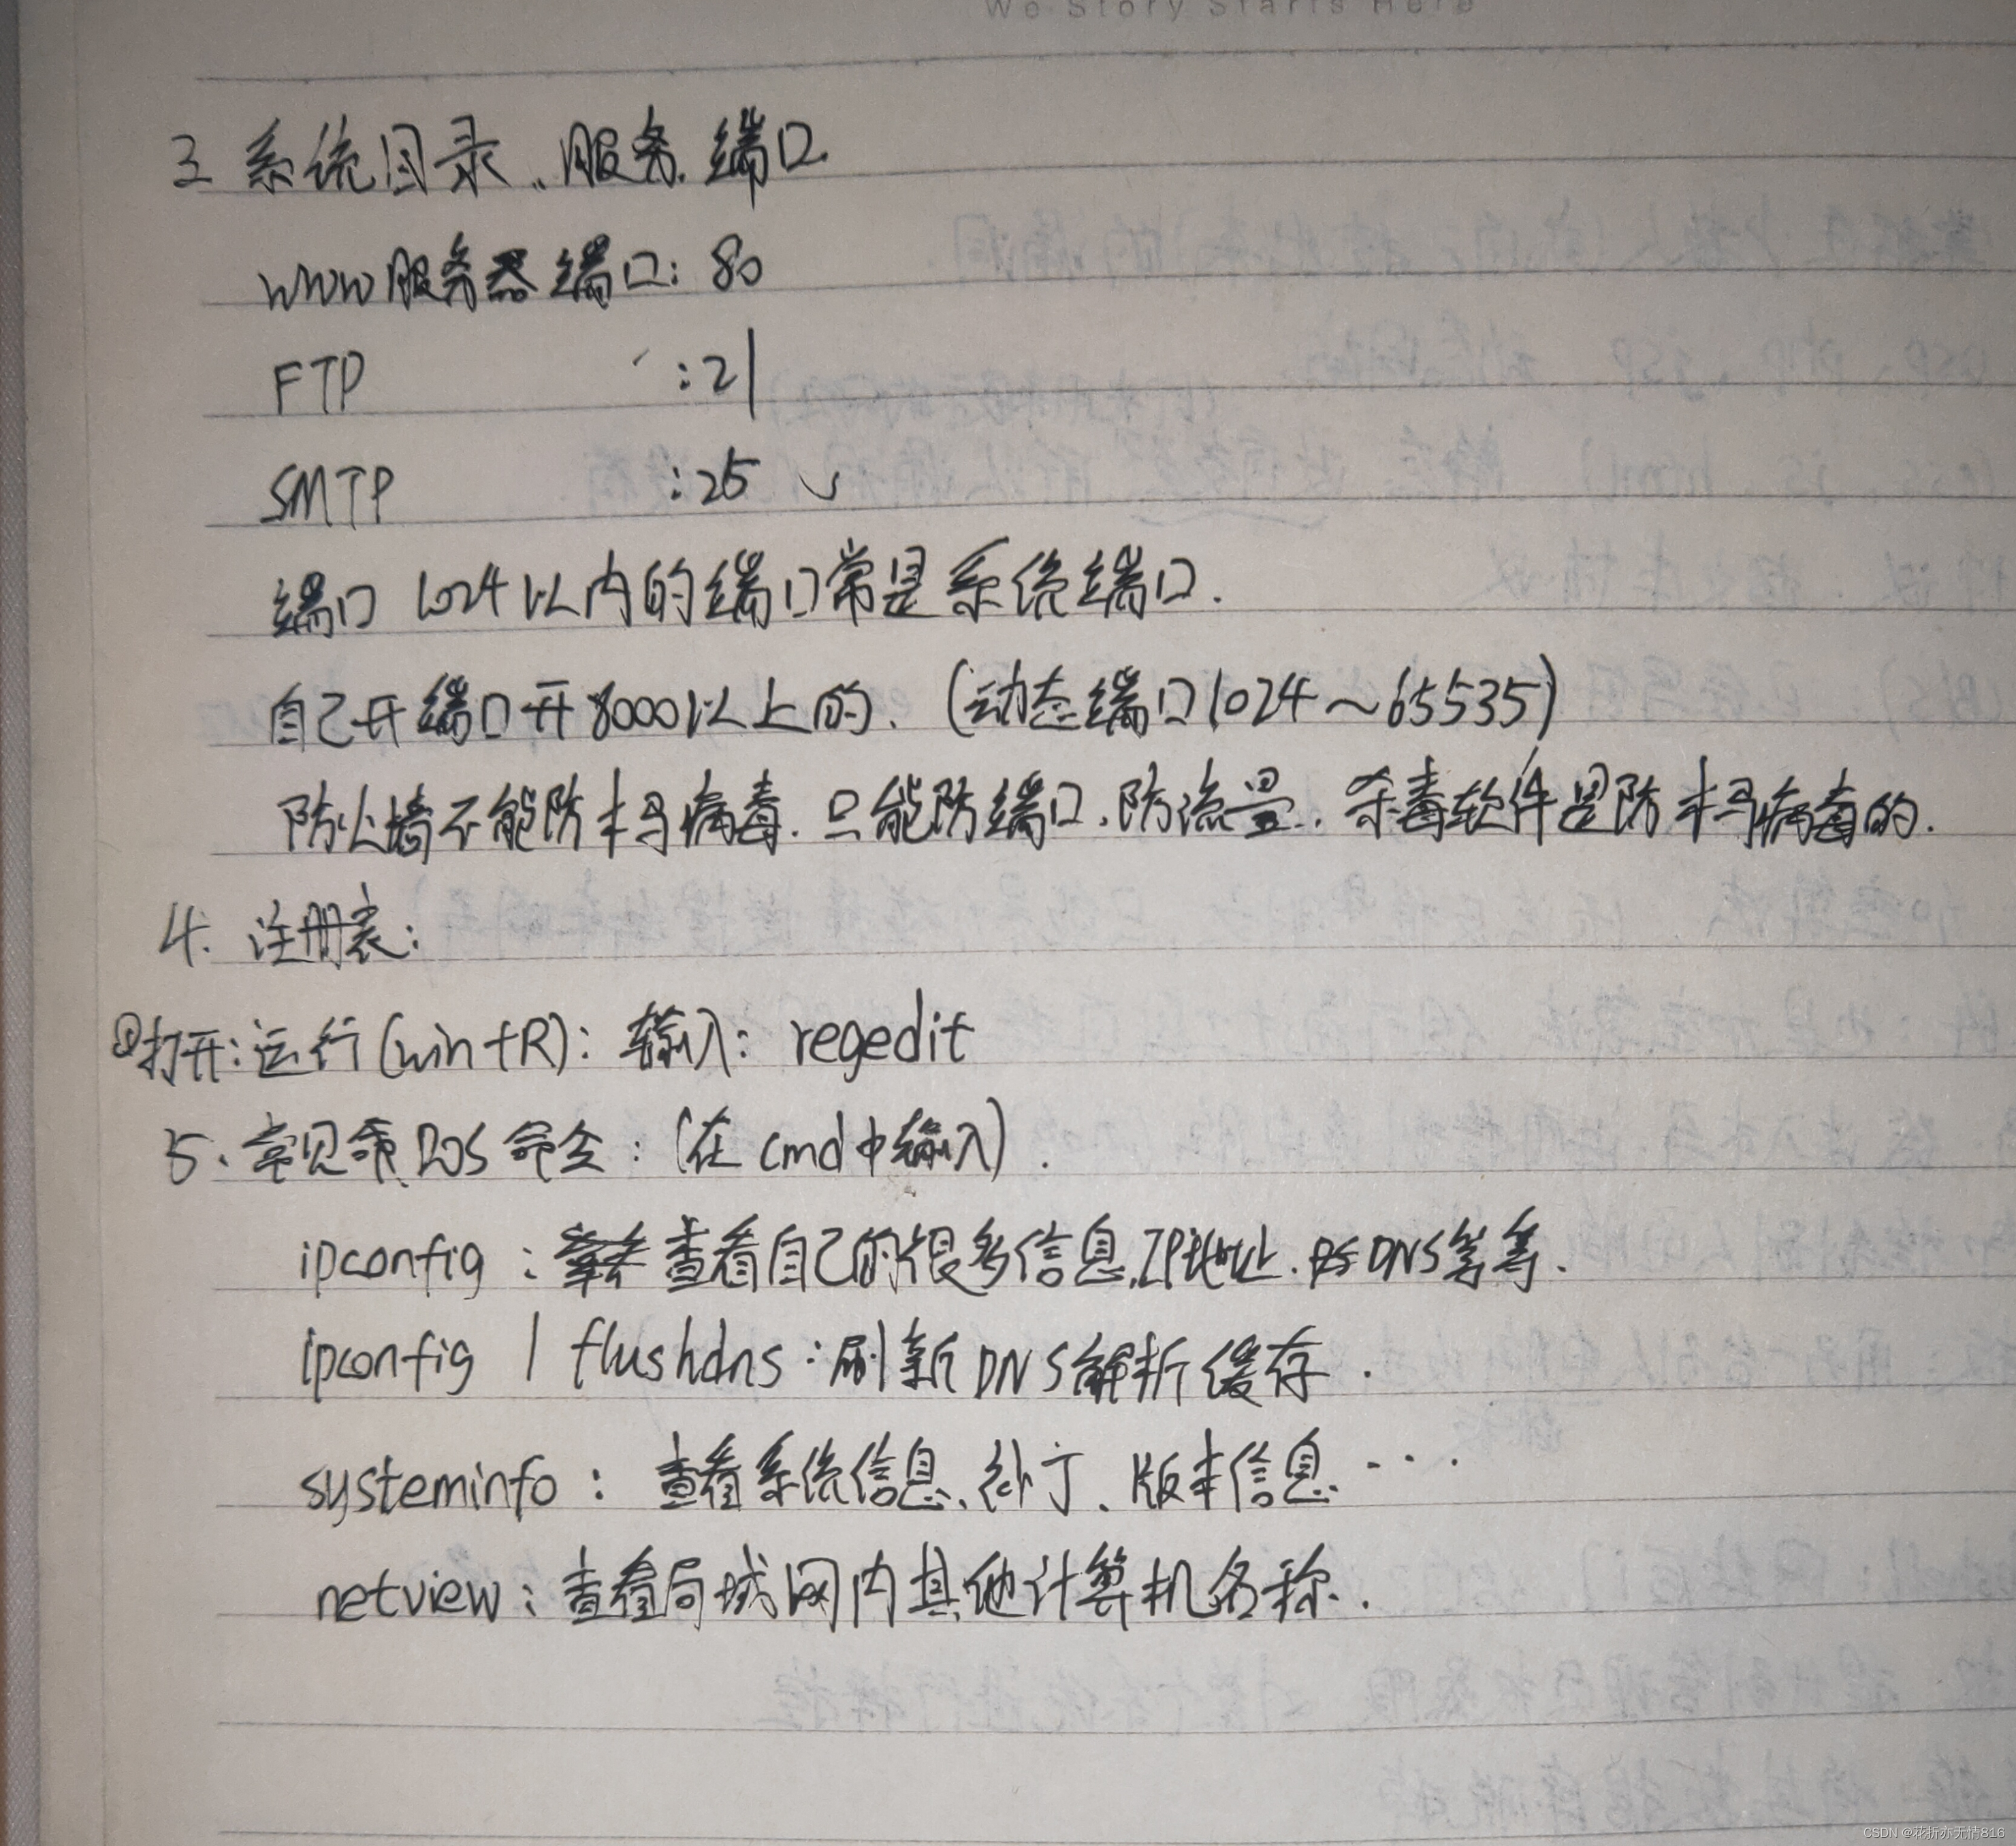 We Story Starts Here
3. 系统目录、服务、端口.
www服务器端口: 80
FTP :21
SMTP :25
端口 1024以内的端口常是系统端口.
自己开端口开8000以上的. (动态端口1024～65535)
防火墙不能防木马病毒.只能防端口.防流量.杀毒软件是防木马病毒的.
4. 注册表:
打开:运行(win+R): 输入: regedit
5、常见 DOS 命令: (在cmd中输入).
ipconfig : 查看自己的很多信息,IP地址.DNS等等.
ipconfig / flushdns :刷新DNS解析缓存.
systeminfo : 查看系统信息、补丁、版本信息...
netview : 查看局域网内其他计算机名称.
CSDN @花折亦无情816